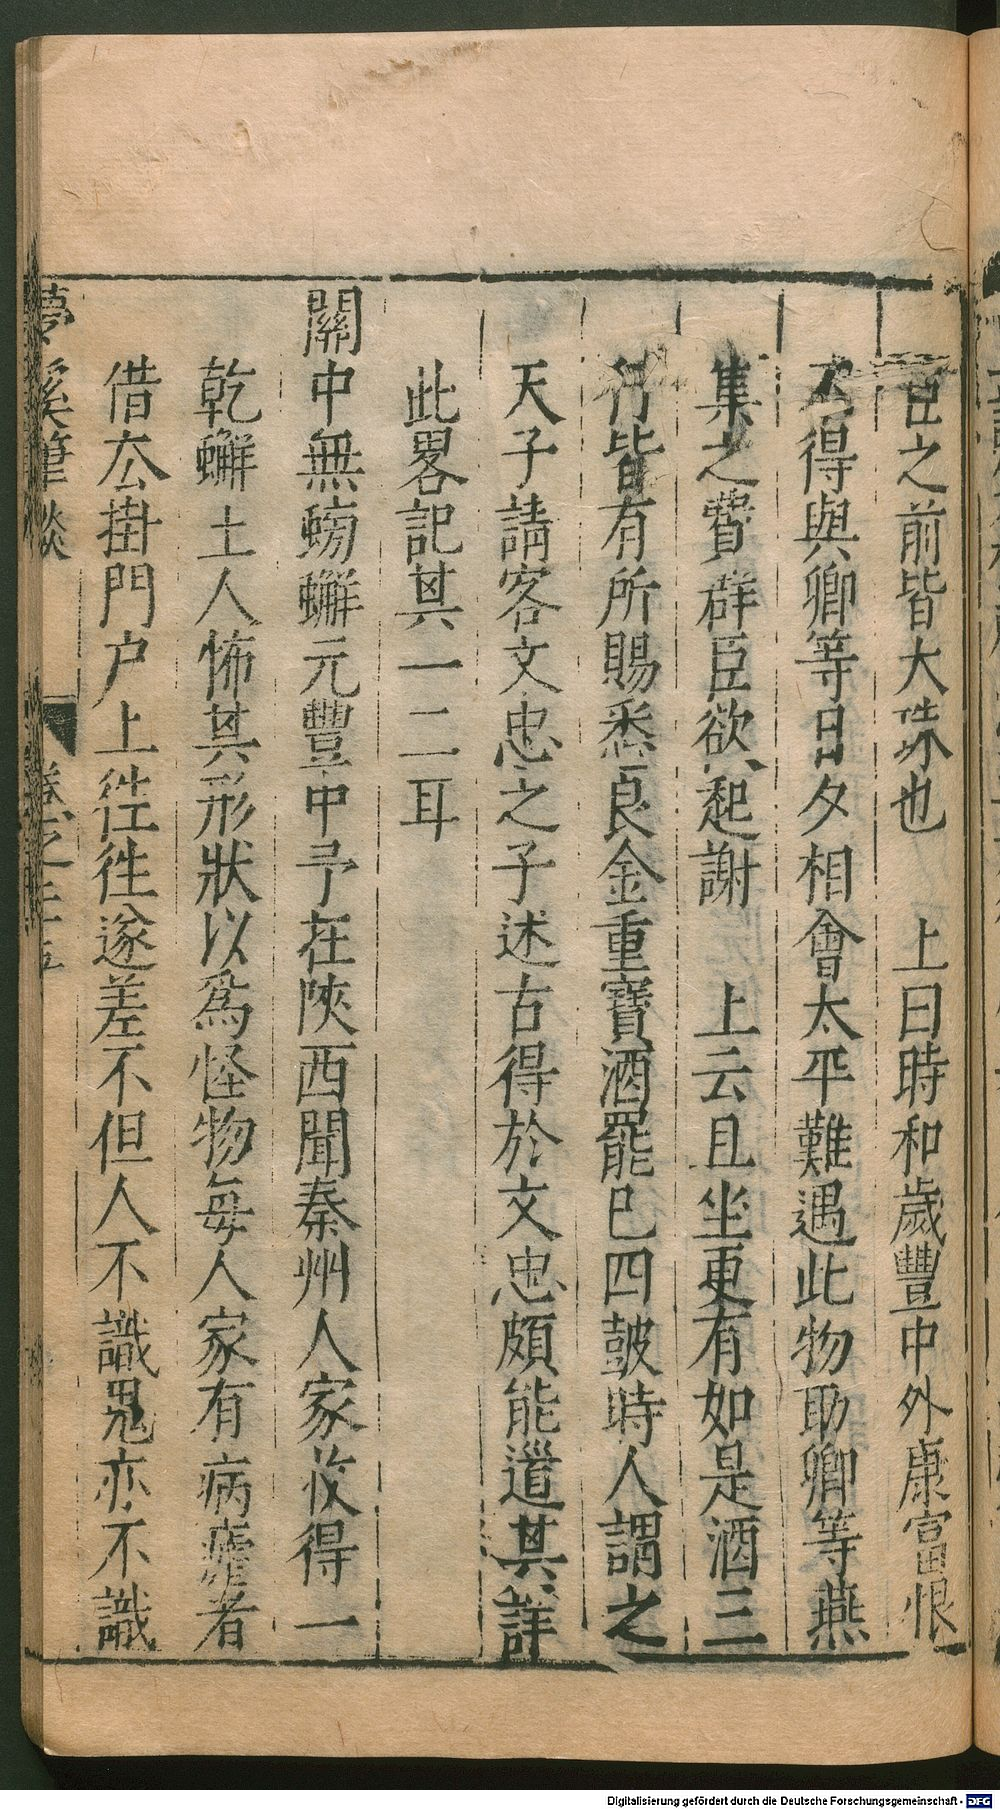 臣之前皆大珠也　上曰時和歲豐中外康富恨
不得與卿等日夕相會太平難遇此物助卿等燕
集之費群臣欲起謝　上云且坐更有如是酒三
行皆有所賜悉良金重寶酒罷已四皷時人謂之
天子請客文忠之子述古得於文忠頗能道其詳
此畧記其一二耳
關中無螃蠏元豐中予在陝西聞秦州人家收得一
乾蠏土人怖其形狀以爲怪物每人家有病瘧者
借去掛門户上徃徃遂差不但人不識鬼亦不識
夢溪筆談
卷之二十五
Digitalisierung gefördert durch die Deutsche Forschungsgemeinschaft - DFG